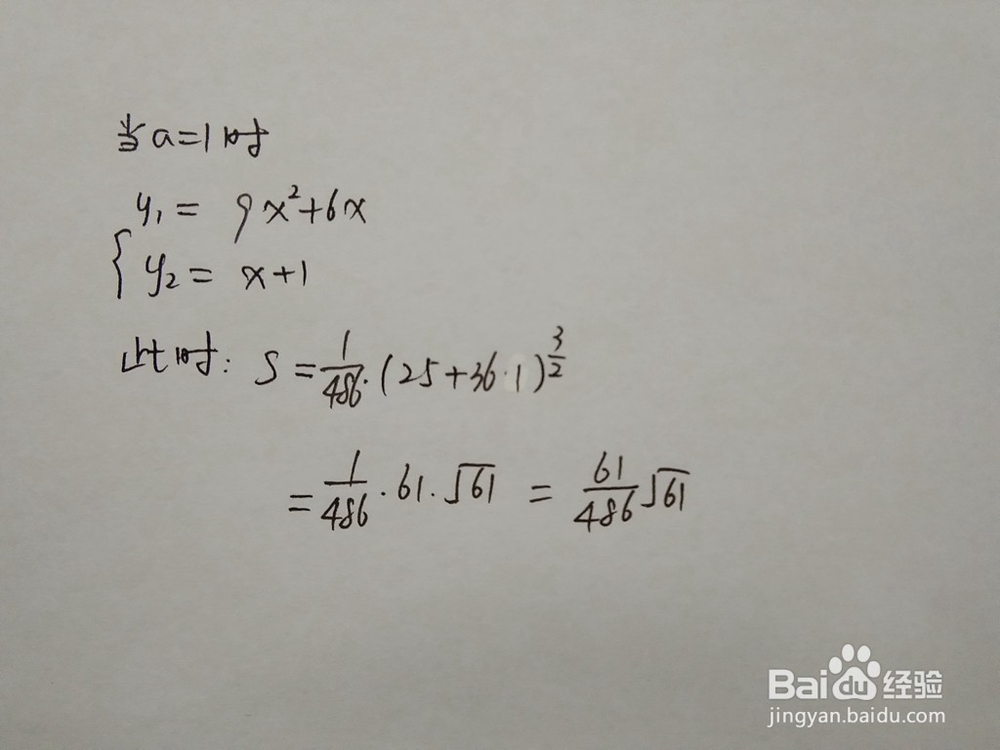 当a=1时
y₁ = 9x²+6x
{ y₂ = x+1
此时: S = 1/486 · (25+36·1)^(3/2)
= 1/486 · 61 · √61 = 61/486 √61
Baidu经验
jingyan.baidu.com